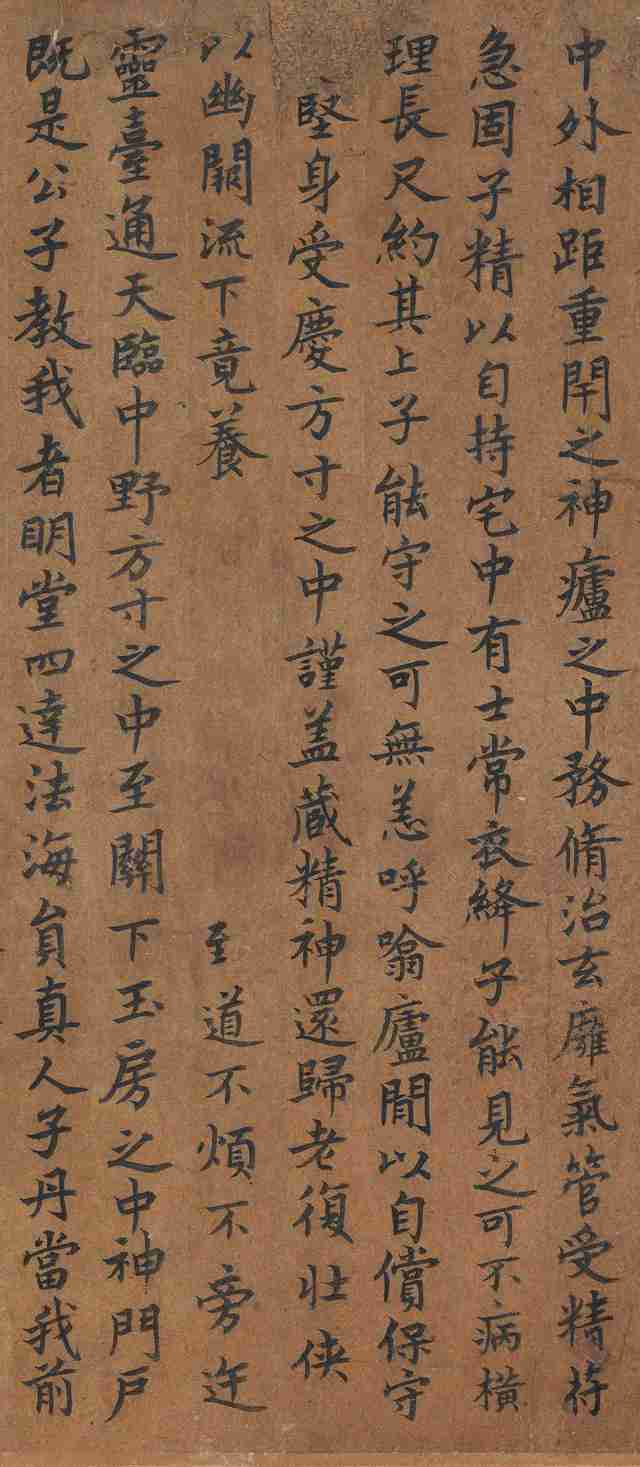 中外相距重閇之神廬之中務脩治玄廱氣管受精符
急固子精以自持宅中有士常衣絳子能見之可不病橫
理長尺約其上子能守之可無恙呼噏廬閒以自償保守
貇身受慶方寸之中謹盖蔵精神還歸老復壯侠
以幽闕流下竟養 至道不煩不旁迕
靈臺通天臨中野方寸之中至關下玉房之中神門戶
既是公子教我者明堂四達法海員真人子丹當我前